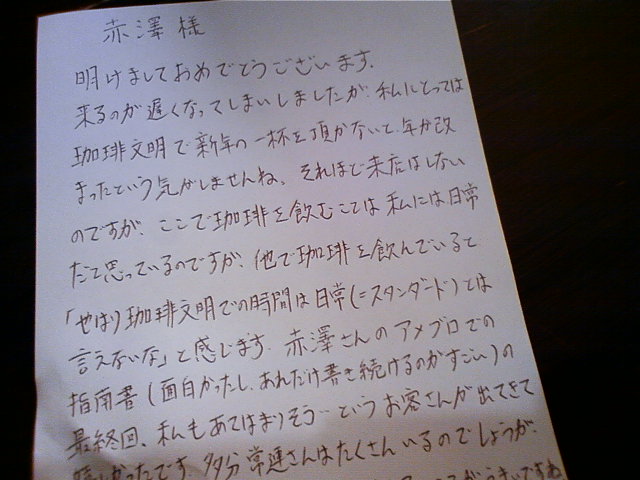 赤澤様
明けましておめでとうございます.
来るのが遅くなってしまいしましたが、私にとっては
珈琲文明で新年の一杯を頂かないと、年が改
まったという気がしませんね。それほど来店はしない
のですが、ここで珈琲を飲むことは私には日常
だと思っているのですが、他で珈琲を飲んでいると
「やはり珈琲文明での時間は日常(=スタンダード)とは
言えないな」と感じます. 赤澤さんのアメブロでの
指南書(面白かったし、あれだけ書き続けるのがすごい)の
最終回、私もあてはまりそう…というお客さんが出てきて
かったです. 多分常連さんはたくさんいるのでしょうが、